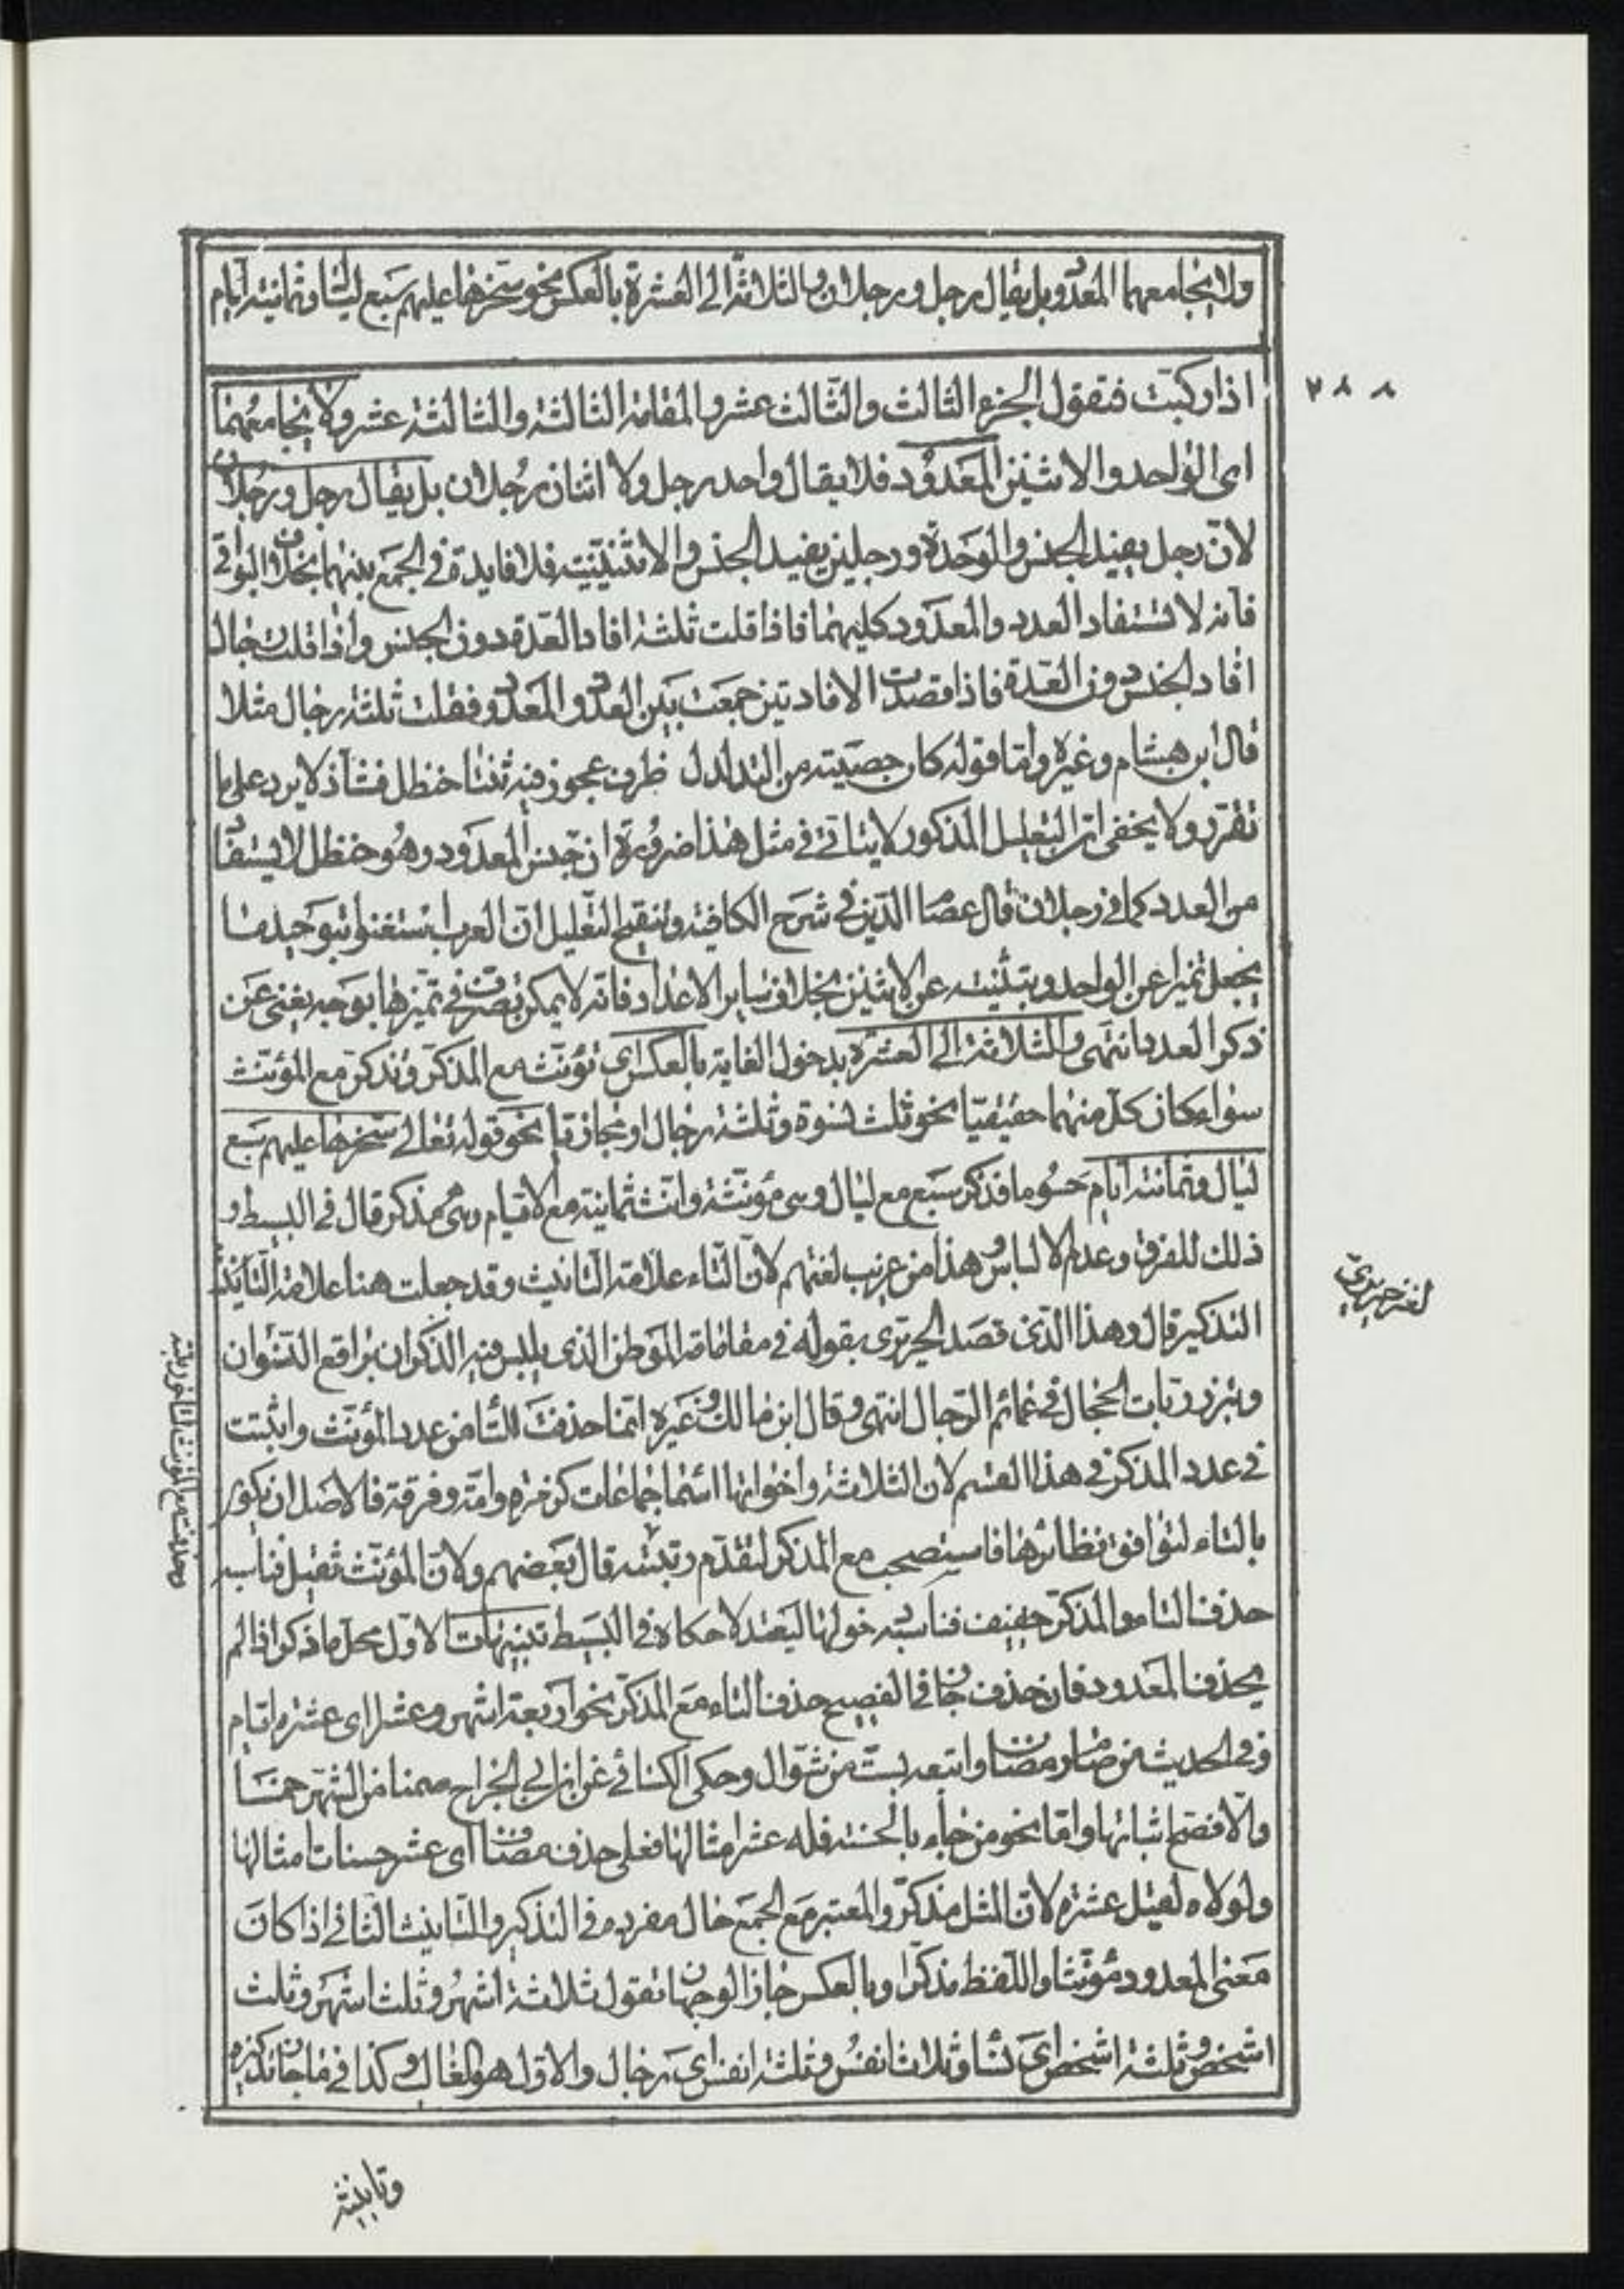 ولا يجامعهما المعدود بل يقال رجل ورجلان والثلاثة الى العشرة بالعكس نحو سخرها عليهم سبع ليال وثمانية أيام
٢٨٨
اذا ركبت فتقول الجزء الثالث والثالث عشر والمقامة الثالثة والثالثة عشر ولا يجامعهما
اى الواحد والاثنين المعدود فلا يقال واحد رجل ولا اثنان رجلان بل يقال رجل ورجلان
لان رجل يفيد الجنس والوحدة ورجلين يفيد الجنس والاثنينية فلا فايدة فى الجمع بينهما بخلاف البواقى
فانه لا تستفاد العدد والمعدود كليهما فاذا قلت ثلثة افاد العدة دون الجنس واذا قلت رجال
افاد الجنس دون العدة فاذا قصدت الافادتين جمعت بين العدد والمعدود فقلت ثلثة رجال مثلا
قال ابن هشام وغيره واما قوله كان خصيته من التدلدل ظرف عجوز فيه ثنتا حنظل فشاذ لا يرد على ما
تقرر ولا يخفى ان التعليل المذكور لا يتاتى فى مثل هذا ضرورة ان جنس المعدود وهو حنظل لا يستفاد
من العدد كما فى رجلان قال عصام الدين فى شرح الكافية وتنقيح التعليل ان العرب استغنوا بتوحيد ما
يجعل تميزا عن الواحد وبتثنيته عن الاثنين بخلاف ساير الاعداد فانه لا يمكن تصرف فى تميزها بوجه يغنى عن
ذكر العدد انتهى والثلاثة الى العشرة بدخول الغاية بالعكس اى تؤنث مع المذكر وتذكر مع المؤنث
سواء كان كل منهما حقيقيا نحو ثلث نسوة وثلثة رجال او مجازيا نحو قوله تعالى سخرها عليهم سبع
ليال وثمانية ايام حسوما فذكر سبع مع ليال وهى مؤنثة وانث ثمانية مع الايام وهى مذكر قال فى البسيط و
ذلك للفرق وعدم الالباس وهذا من غريب لغتهم لان التاء علامة التانيث وقد جعلت هنا علامة
لغز حريرى
التذكير قال وهذا الذى قصد الحريرى بقوله فى مقاماته الموطن الذى يلبس فيه الذكران براقع النسوان
وتبرز ربات الحجال فى عمائم الرجال انتهى وقال ابن مالك وغيره انما حذفت التا من عدد المؤنث واثبتت
فى عدد المذكر فى هذا القسم لان الثلاثة واخواتها اسما جماعات كزمرة وامة وفرقة فالاصل ان تكون
بالتاء لتوافق نظائرها فاستصحب مع المذكر لتقدم رتبته قال بعضهم ولان المؤنث ثقيل فناسبه
حذف التاء والمذكر خفيف فناسبه دخولها ليعتدلا حكاه فى البسيط تنبيهات الاول محل ما ذكر اذا لم
يحذف المعدود فان حذف جاز فى الفصيح حذف التاء مع المذكر نحو اربعة اشهر وعشرا اى عشرة ايام
وفى الحديث من صام رمضان واتبعه بست من شوال وحكى الكسائى عن ابى الجراح صمنا من الشهر خمسا
والافصح اثباتها واما نحو من جاء بالحسنة فله عشر امثالها فعلى حذف مضاف اى عشر حسنات امثالها
ولولاه لقيل عشرة لان المثل مذكر والمعتبر مع الجمع حال مفرده فى التذكير والتانيث الثانى اذا كان
معنى المعدود مؤنثا واللفظ مذكرا وبالعكس جاز الوجهان تقول ثلاثة اشهر وثلث اشهر وثلث
اشخص وثلثة اشخص اى نسا وثلاث انفس وثلثة انفس اى رجال والاول هو الغالب وكذا فى ما جاز تذكيره
وتانيثه